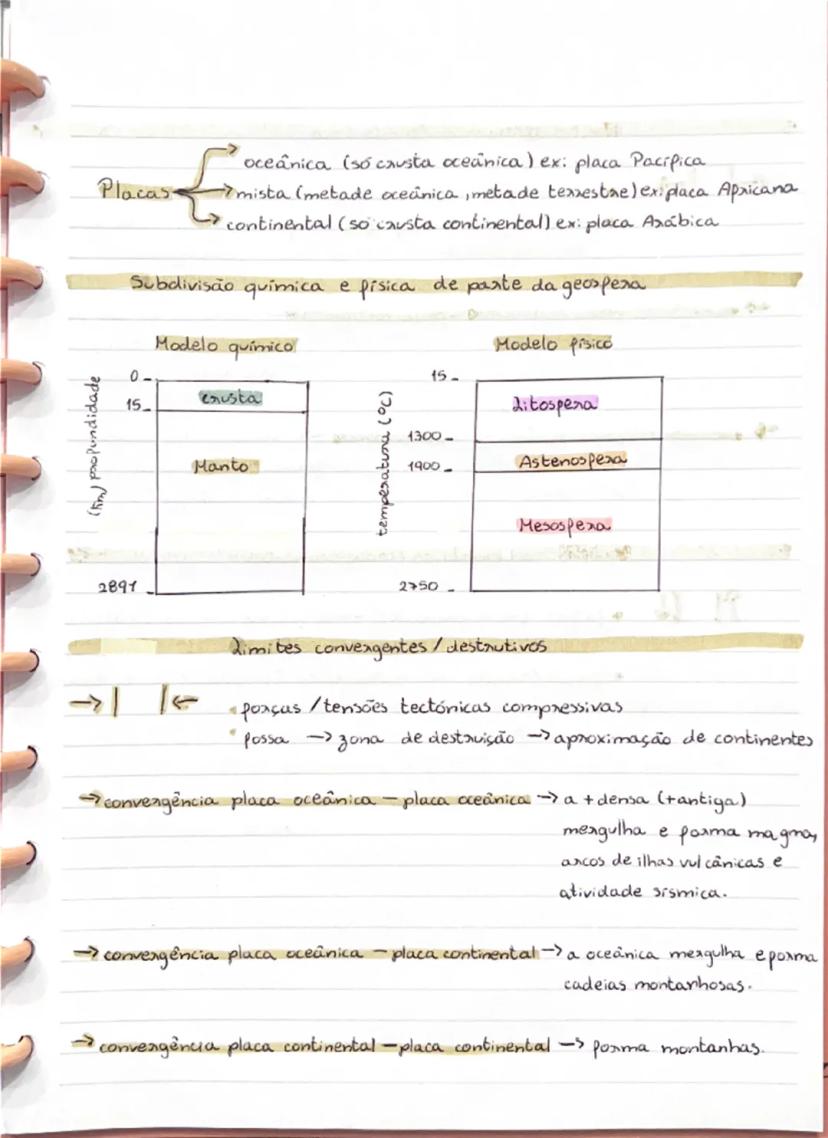 oceânica (só crusta oceânica) ex: placa Pacífica
Placas mista (metade oceânica, metade terrestre) ex: placa Africana
continental (só crusta continental) ex: placa Arábica
Subdivisão química e física de parte da geosfera
Modelo químico
(km) profundidade
0
crusta
15
Manto
2891
Modelo físico
temperatura (°C)
15
Litosfera
1300
Astenosfera
1900
Mesosfera
2750
Limites convergentes/destrutivos
→| |← • forças/tensões tectónicas compressivas
• fossa → zona de destruição → aproximação de continentes
→ convergência placa oceânica - placa oceânica → a + densa (+ antiga)
mergulha e forma magma,
arcos de ilhas vulcânicas e
atividade sísmica.
→ convergência placa oceânica - placa continental → a oceânica mergulha e forma
cadeias montanhosas.
→ convergência placa continental - placa continental → forma montanhas.